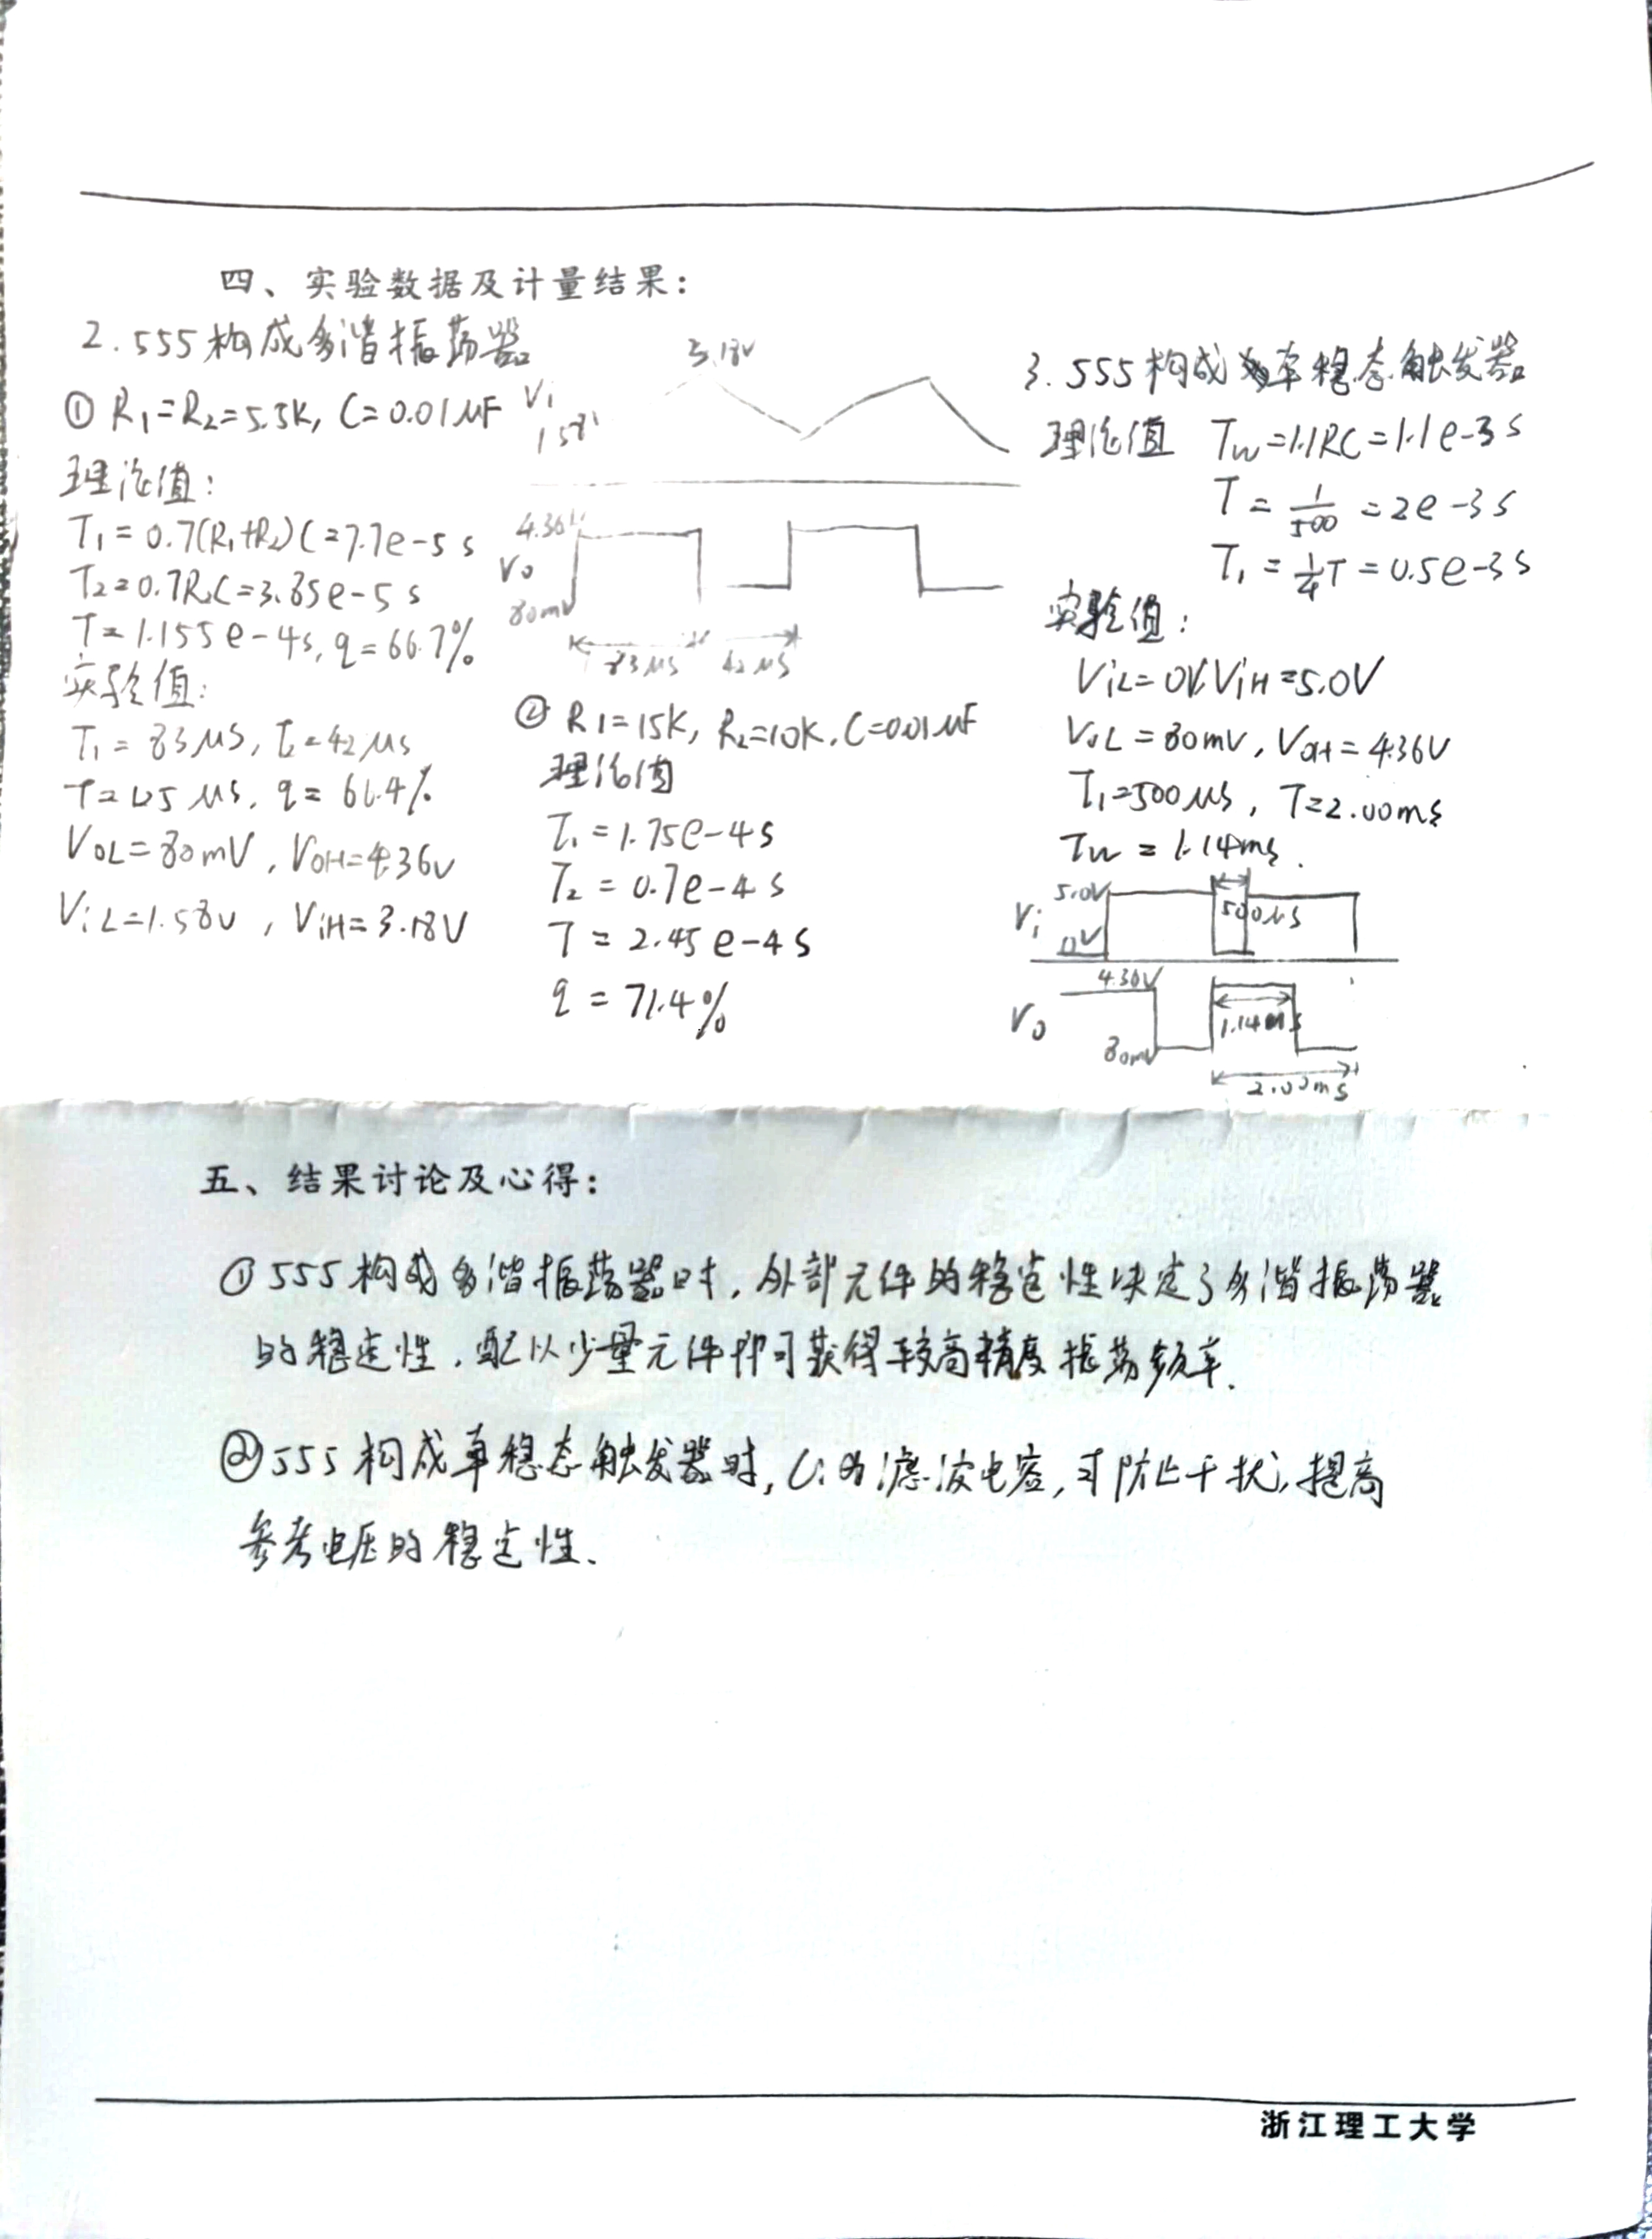 四、实验数据及计量结果：
2.555构成多谐振荡器
① R₁=R₂=5.5K, C=0.01μF
理论值：
T₁=0.7(R₁+R₂)C=7.7e-5 s
T₂=0.7R₂C=3.85e-5 s
T=1.155e-4s, q=66.7%
实验值：
T₁=83μs, T₂=42μs
T=125μs, q=66.4%
VOL=80mV, VOH=4.36V
ViL=1.58V, ViH=3.18V
3.18V
Vi
1.58V
4.36V
Vo
80mV
83μs 42μs
② R1=15K, R₂=10K, C=0.01μF
理论值
T₁=1.75e-4s
T₂=0.7e-4s
T=2.45e-4s
q=71.4%
3.555构成单稳态触发器
理论值 Tw=1.1RC=1.1e-3s
T=1/500=2e-3s
T₁=1/4T=0.5e-3s
实验值：
ViL=0V, ViH=5.0V
VoL=80mV, VoH=4.36V
T₁=500μs, T=2.00ms
Tw=1.14ms.
5.0V
Vi
500μs
0V
4.36V
Vo
1.14ms
80mV
2.00ms
五、结果讨论及心得：
①555构成多谐振荡器时，外部元件的稳定性决定了多谐振荡器
的稳定性，配以少量元件即可获得较高精度振荡频率.
②555构成单稳态触发器时，C₁为滤波电容，可防止干扰，提高
参考电压的稳定性、
浙江理工大学